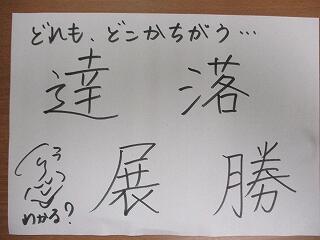 どれも、どこかちがう…
達 落
展 勝
わかる?